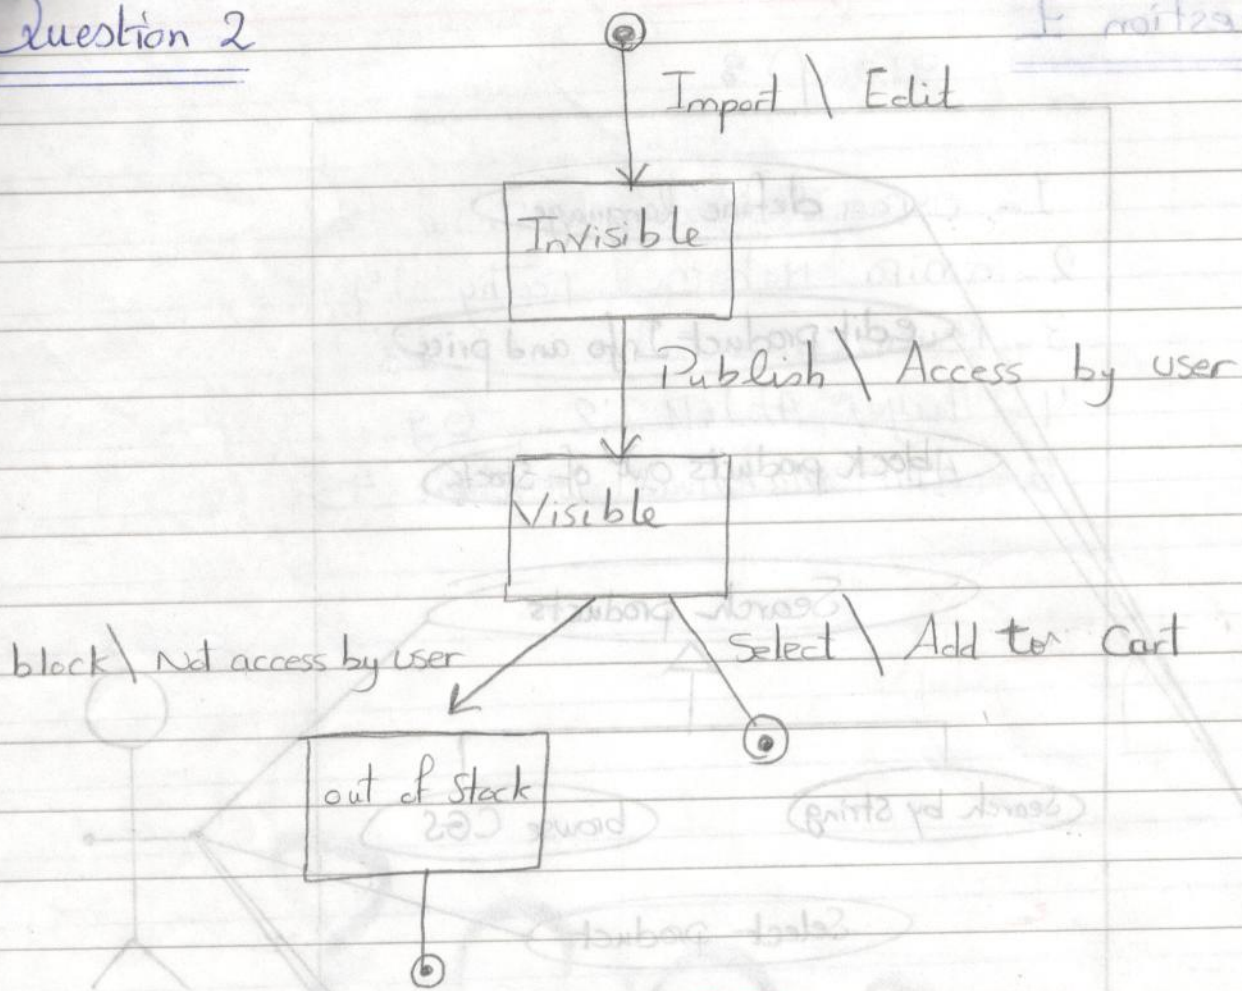 Question 2
Import \ Edit
Invisible
Publish \ Access by user
Visible
block \ Not access by user
Select \ Add to Cart
out of Stock